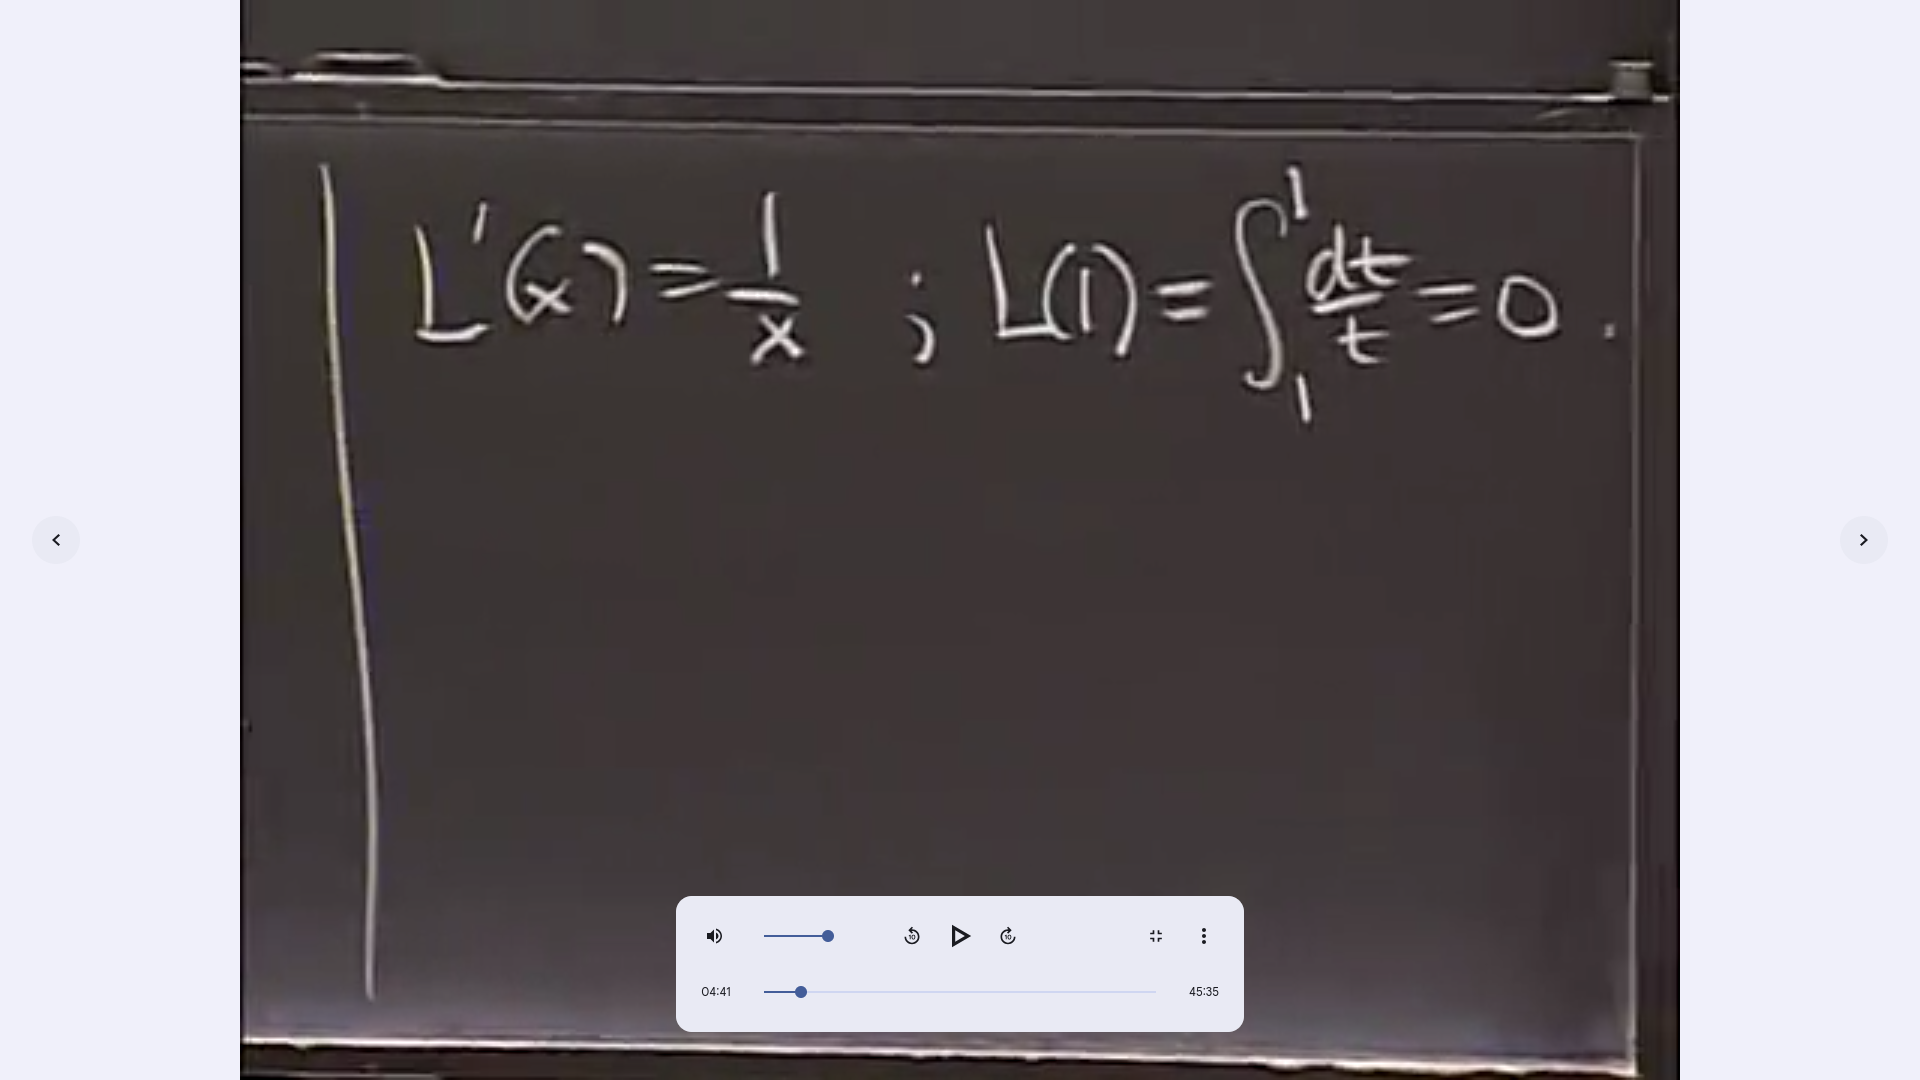 L'(x) = 1/x ; L(1) = ∫₁¹ dt/t = 0 .
10 10
04:41 45:35